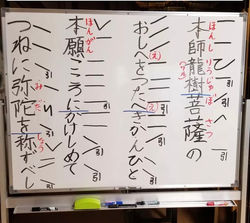 本師龍樹菩薩の
おしへをつたへきかんひと
ほんがん
本願こころにかけしめて
みだ しょう
つねに弥陀を称すべし